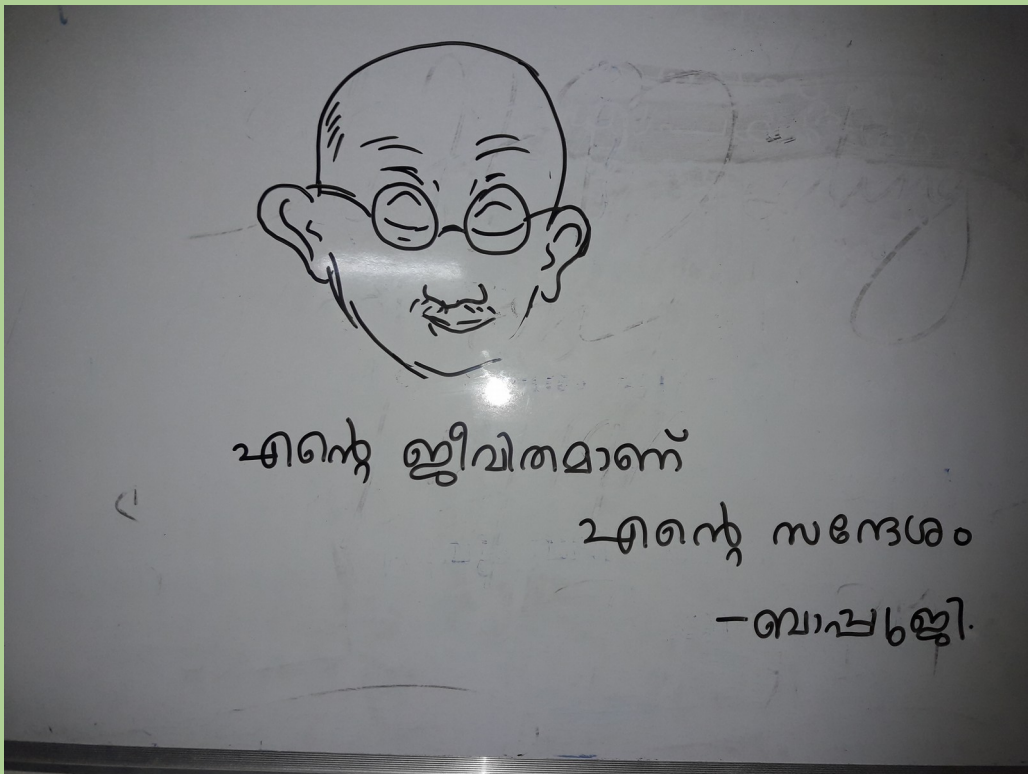 എന്റെ ജീവിതമാണ്
എന്റെ സന്ദേശം
-ബാപ്പുജി.